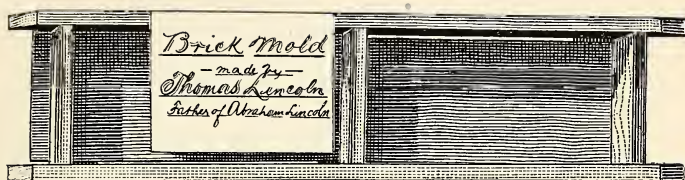 Brick Mold
— made by —
Thomas Lincoln
Father of Abraham Lincoln